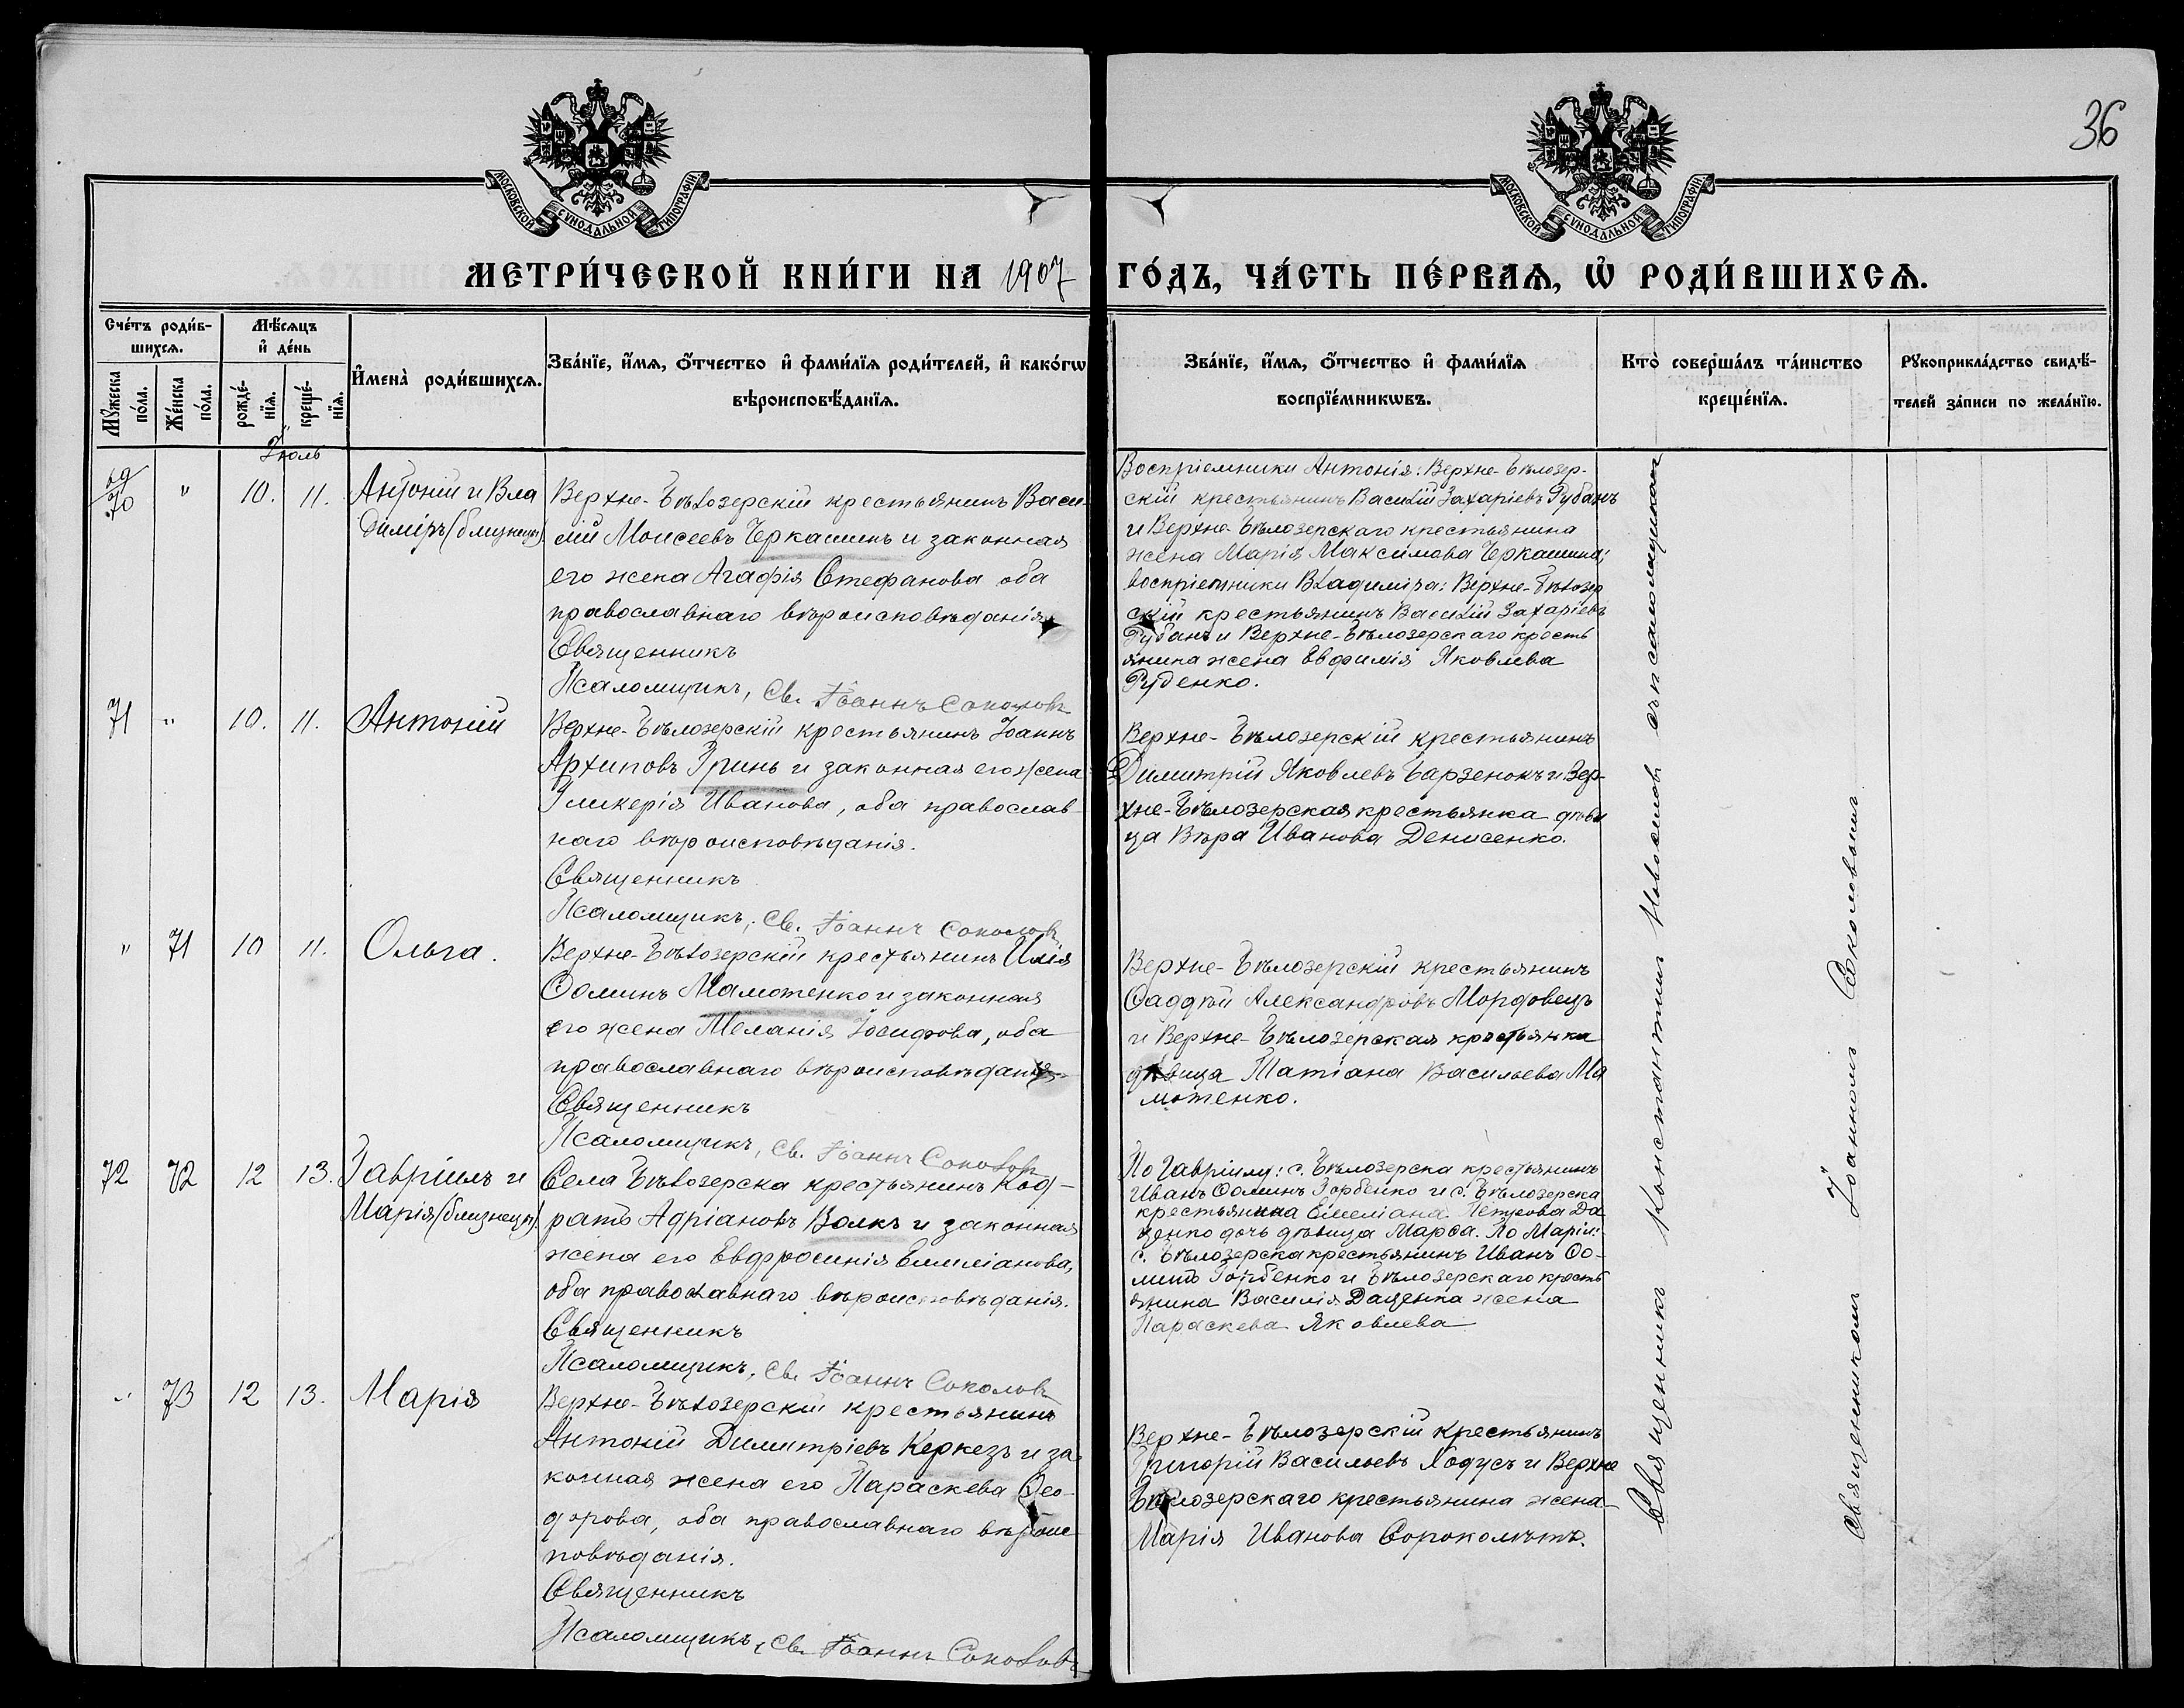 36
МОСКОВСКОЙ СѴНОДАЛЬНОЙ ТИПОГРАФІИ
МОСКОВСКОЙ СѴНОДАЛЬНОЙ ТИПОГРАФІИ
МЕТРИ́ЧЕСКОЙ КНИ́ГИ НА 1907
ГО́ДЪ, ЧА́СТЬ ПЕ́РВАѦ, Ѡ҆ РОДИ́ВШИХСѦ.
Сче́тъ роди́в-
шихсѧ.
Мѣ́сѧцъ
и҆ де́нь
Мꙋ́жеска
по́ла.
Же́нска
по́ла.
рожде́-
нїѧ.
креще́-
нїѧ.
И҆мена̀ роди́вшихсѧ.
Зва́нїе, и҆́мѧ, ѻ҆́тчество и҆ фами́лїѧ роди́телей, и҆ како́гѡ
вѣроисповѣ́данїѧ.
Зва́нїе, и҆́мѧ, ѻ҆́тчество и҆ фами́лїѧ
воспрїе́мникѡвъ.
Кто̀ соверша́лъ та́инство
креще́нїѧ.
Рꙋкоприкла́дство свидѣ́-
телей за́писи по жела́нїю.
Іюль
69
70 " 10. 11. Антоній и Вла
диміръ (близнецы)
Верхне-Бѣлозерскій крестьянинъ Васи-
лій Моисеевъ Черкашинъ и законная
его жена Агафія Стефанова оба
православнаго вѣроисповѣданія
Священникъ
Псаломщикъ, Св. Іоаннъ Соколовъ
Воспріемники Антонія: Верхне-Бѣлозер-
скій крестьянинъ Василій Захаріевъ Рубанъ
и Верхне-Бѣлозерскаго крестьянина
жена Марія Максимова Черкашина;
воспріемники Владиміра: Верхне-Бѣлозер
скій крестьянинъ Василій Захаріевъ
Рубанъ и Верхне-Бѣлозерскаго кресть
янина жена Евфимія Яковлева
Руденко.
71 " 10. 11. Антоній
Верхне-Бѣлозерскій крестьянинъ Іоаннъ
Архиповъ Гринь и законная его жена
Гликерія Иванова, оба православ
наго вѣроисповѣданія.
Священникъ
Псаломщикъ, Св. Іоаннъ Соколовъ
Верхне-Бѣлозерскій крестьянинъ
Димитрій Яковлевъ Барзенокъ и Вер-
хне-Бѣлозерская крестьянка дѣви
ца Вѣра Иванова Денисенко.
" 71 10 11. Ольга.
Верхне-Бѣлозерскій крестьянинъ Илія
Ѳоминъ Мамотенко и законная
его жена Меланія Іосифова, оба
православнаго вѣроисповѣданія
Священникъ
Псаломщикъ, Св. Іоаннъ Соколовъ
Верхне-Бѣлозерскій крестьянинъ
Ѳаддѣй Александровъ Мордовецъ
и Верхне-Бѣлозерская крестьянка
дѣвица Татіана Васильева Ма
мотенко.
72 72 12 13. Гавріилъ и
Марія (близнецы)
Села Бѣлозерска крестьянинъ Код-
ратъ Адріановъ Волкъ и законная
жена его Евфросинія Емиліанова,
оба православнаго вѣроисповѣданія.
Священникъ
Псаломщикъ, Св. Іоаннъ Соколовъ
По Гавріилу: с. Бѣлозерска крестьянинъ
Иванъ Ѳоминъ Горбенко и с. Бѣлозерска
крестьянина Емеліана Петрова Да
ценко дочь дѣвица Марѳа. По Маріи:
с. Бѣлозерска крестьянинъ Иванъ Ѳо-
минъ Горбенко и Бѣлозерскаго кресть
янина Василія Даценка жена
Параскева Яковлева
" 73 12 13. Марія
Верхне-Бѣлозерскій крестьянинъ
Антоній Димитріевъ Керкезъ и за-
конная жена его Параскева Ѳео-
дорова, оба православнаго вѣроис
повѣданія.
Священникъ
Псаломщикъ, Св. Іоаннъ Соколовъ
Верхне-Бѣлозерскій крестьянинъ
Григорій Васильевъ Ходусъ и Верхне
Бѣлозерскаго крестьянина жена
Марія Иванова Сороколѣтъ.
Священникъ Константинъ съ псаломщикомъ
Священникомъ Іоанномъ Соколовымъ